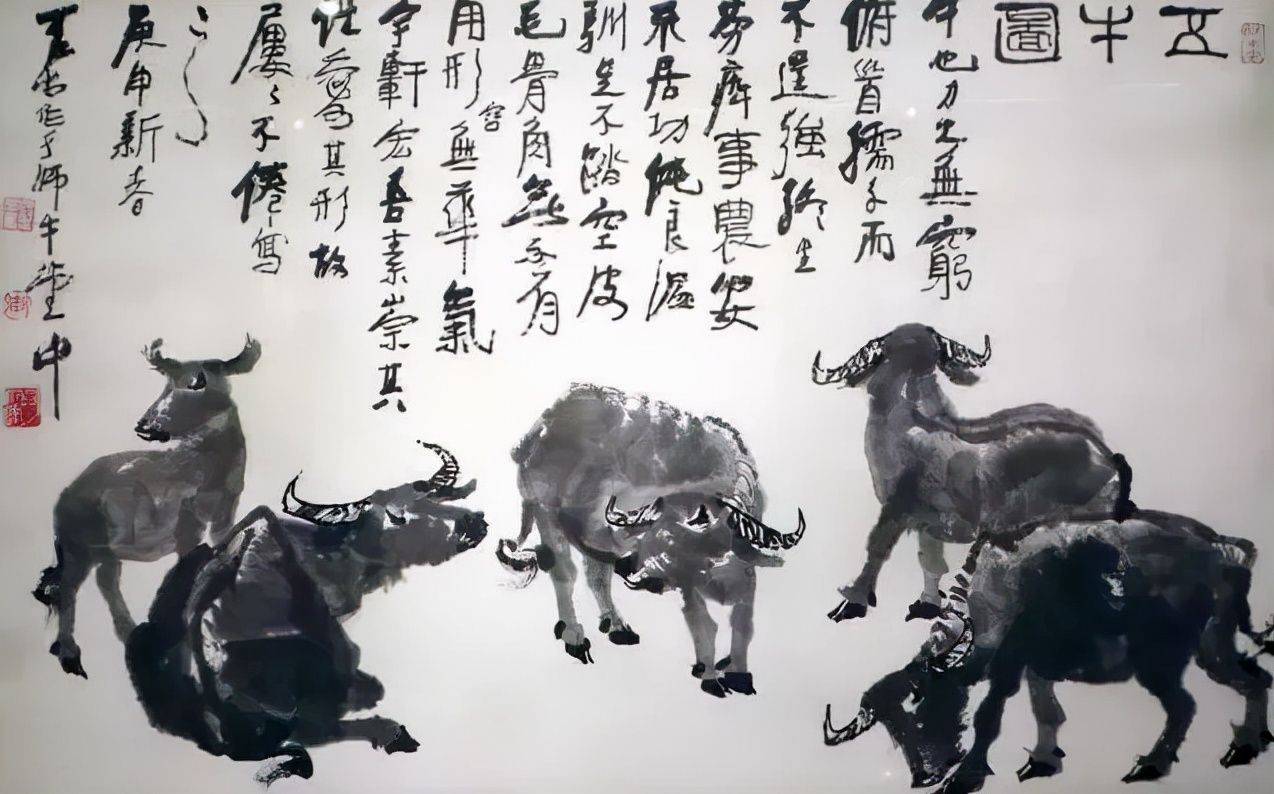 五牛圖
牛也力大無窮
俯首孺子而
不逞強終生
勞瘁事農安
不居功純良溫
馴足不踏空皮
毛骨角無不有
用形容無華氣
宇軒宏吾素崇其
性愛其形故
屢〻不倦寫
之
庚申新春
可染作于師牛堂中